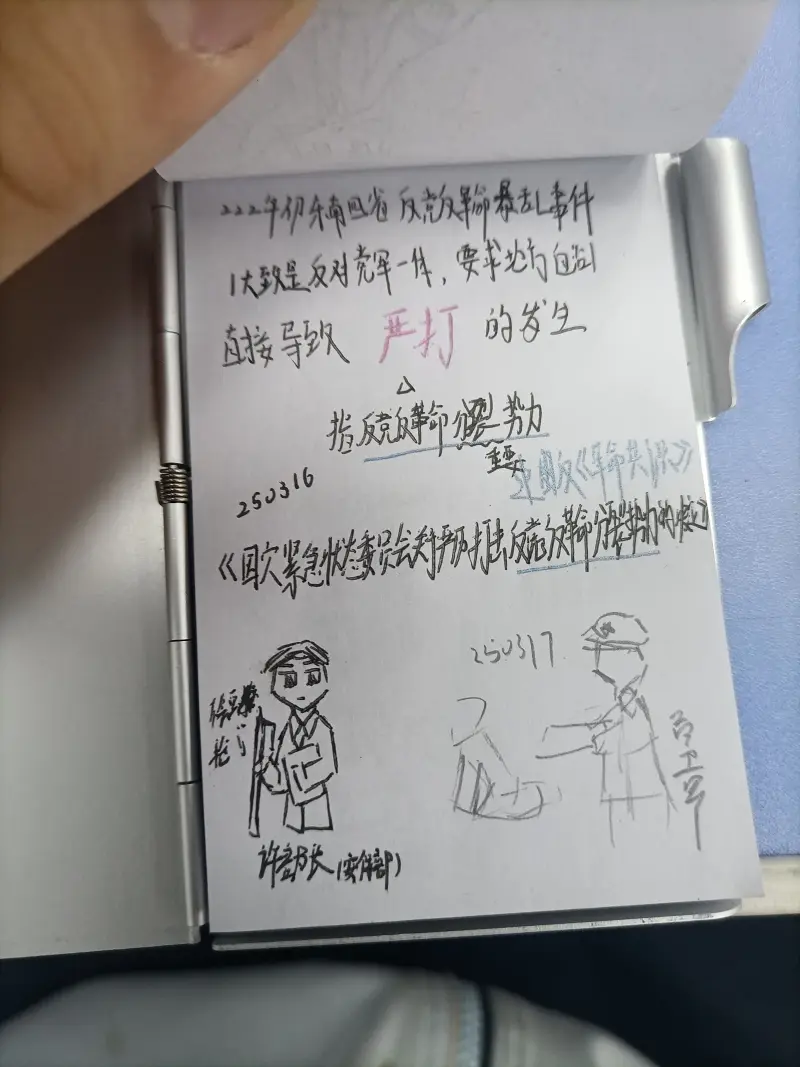 222年初东南四省 反党反革命暴乱事件
(大致是反对党军一体,要求 自治)
直接导致 严打 的发生
指反党反革命分裂势力
重要
《革命共识》
250316
《国家紧急状态委员会关于严厉打击反党反革命分裂势力的决定》
250317
枪
许部长(宣传部)